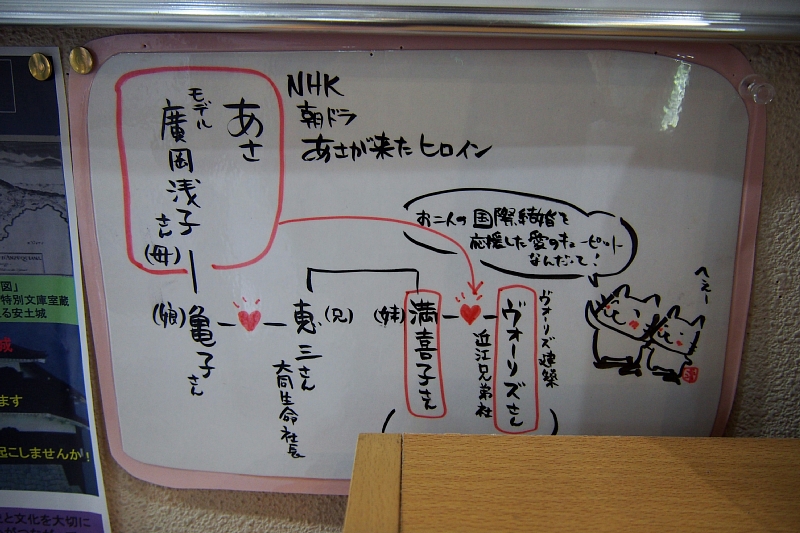 NHK
朝ドラ
あさが来たヒロイン
あさ
モデル
廣岡浅子さん
(母)
お二人の国際結婚を
応援した愛のキューピット
なんだって!
へぇー
(娘)
亀子さん
恵三さん
(兄)
大同生命社長
(妹)
満喜子さん
ヴォーリズさん
近江兄弟社
ヴォーリズ建築
図」
特別文庫室蔵
る安土城
城
ます
起こしませんか!
と文化を大切に